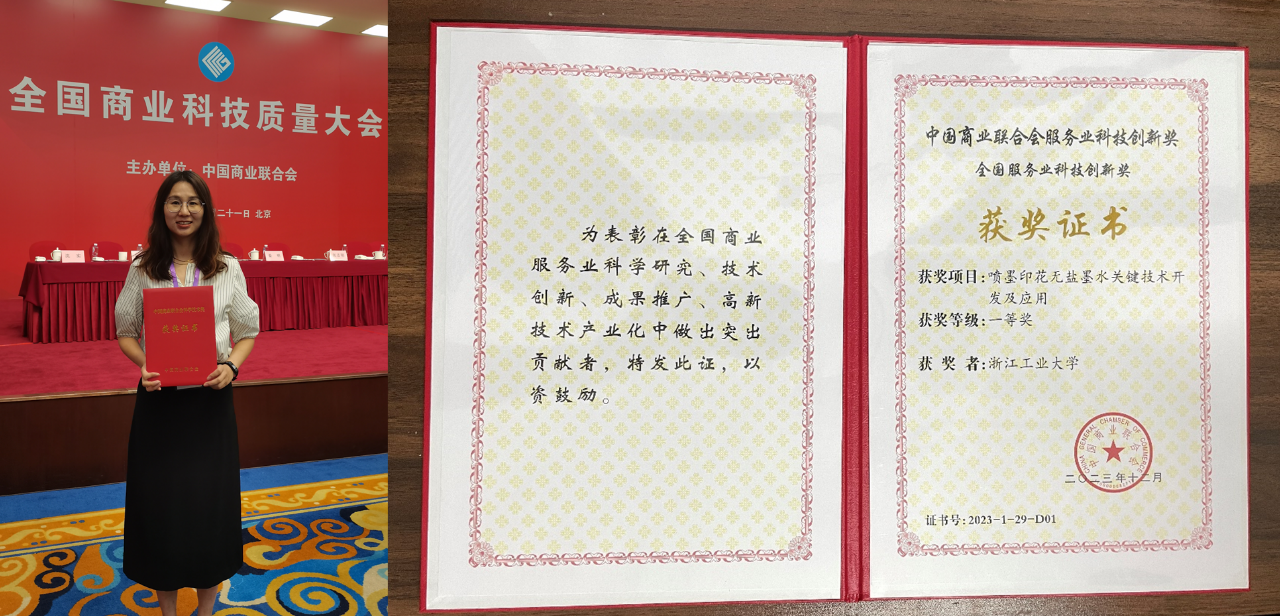 全国商业科技质量大会
主办单位：中国商业联合会
二十一日 北京
获奖证书
为表彰在全国商业
服务业科学研究、技术
创新、成果推广、高新
技术产业化中做出突出
贡献者，特发此证，以
资鼓励。
中国商业联合会服务业科技创新奖
全国服务业科技创新奖
获奖证书
获奖项目：喷墨印花无盐墨水关键技术开
发及应用
获奖等级：一等奖
获 奖 者：浙江工业大学
CHINA GENERAL CHAMBER OF COMMERCE
中国商业联合会
二〇二三年十二月
证书号：2023-1-29-D01